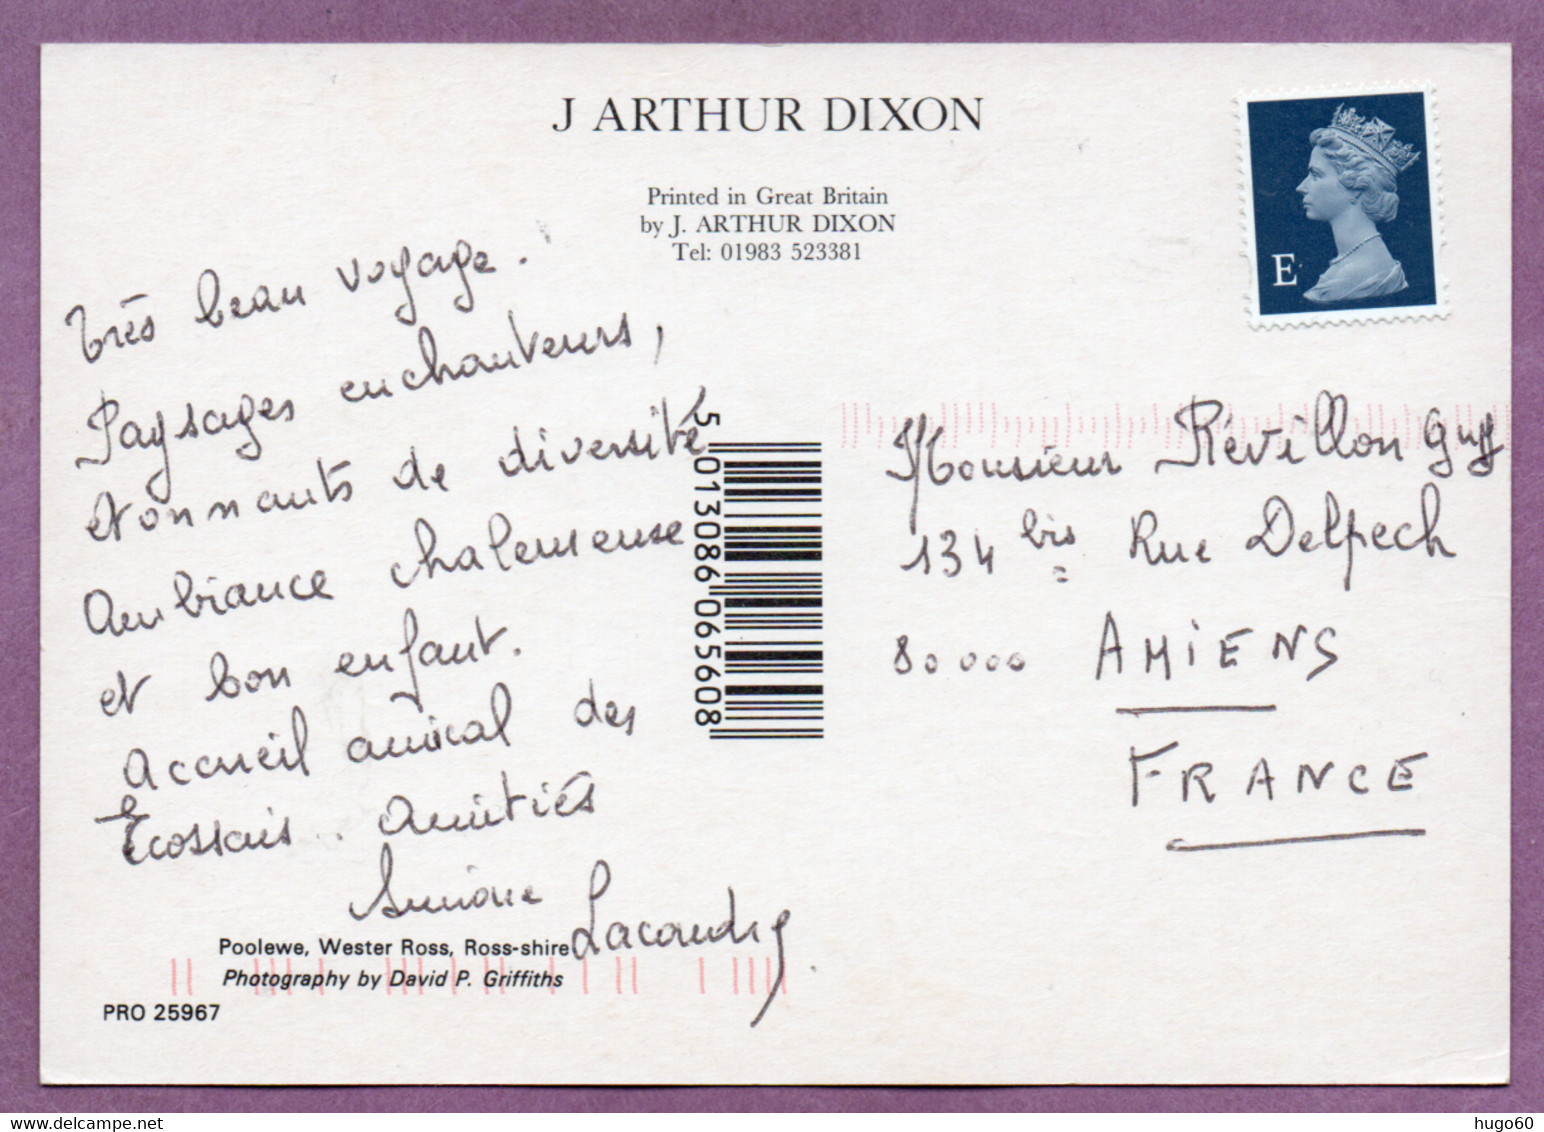 J ARTHUR DIXON
Printed in Great Britain
by J. ARTHUR DIXON
Tel: 01983 523381
E
Très beau voyage.
Paysages enchanteurs,
etonnants de diversité
Ambiance chaleureuse
et bon enfant.
Accueil amical des
Ecossais.. Amitiés
Simone
5 013086 065608
Monsieur Révillon Guy
134 bis Rue Delpech
80000 AMIENS
FRANCE
Poolewe, Wester Ross, Ross-shire
Photography by David P. Griffiths
PRO 25967
hugo60